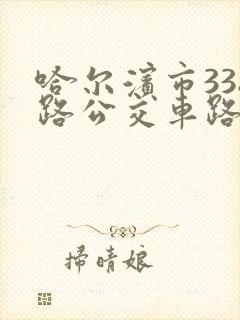 哈尔滨市33
路公交车路
掃晴娘